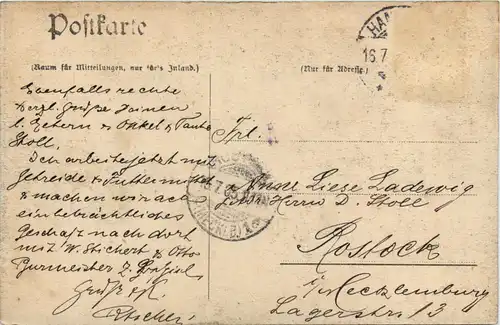 Postkarte
(Raum für Mitteilungen, nur für's Inland.)
(Nur für Adresse)
HAM
16.7
Ebenfalls recht
herzl. Grüße Deinen
l. Eltern & Onkel & Tante
Stoll.
Ich arbeite jetzt mit
Getreide & Futtermittel
& machen wir a
ein beträchtliches
Geschäft nach dort
mit W. Stichert & Otto
Burmeister z. Beispiel
Grüße
Frl.
Anne Liese Ladewig
Herrn D. Stoll
Rostock
i/Mecklenburg
Lagerstr. 13
(MECKLB)